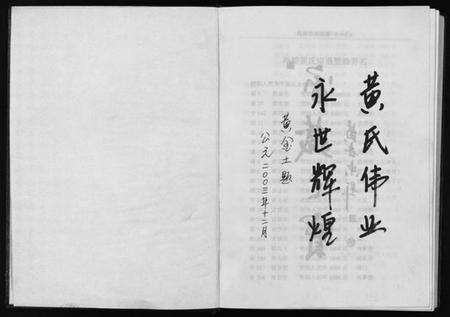 黄氏伟业
永世辉煌
黄金土题
公元二00三年十二月